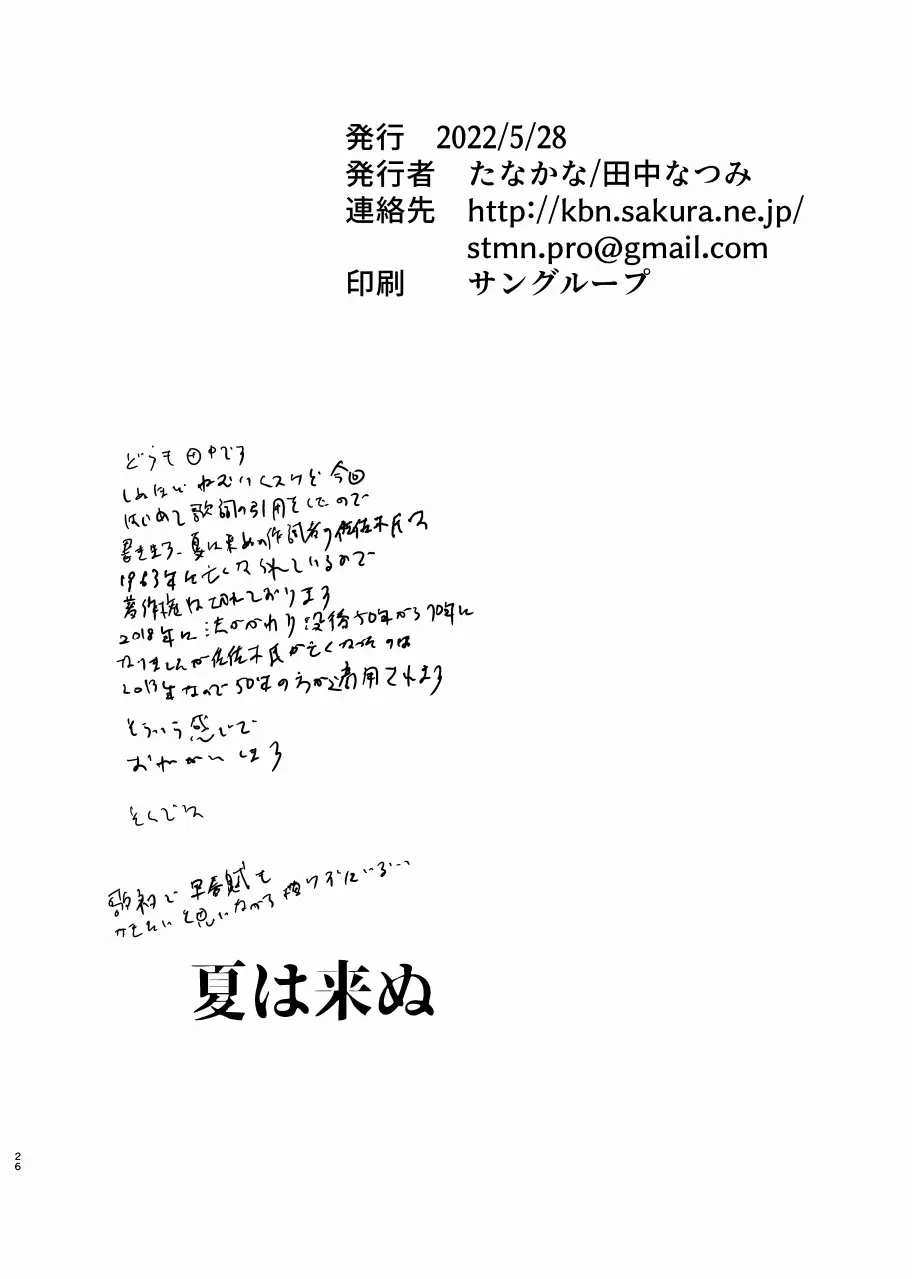 発行 2022/5/28
発行者 たなかな/田中なつみ
連絡先 http://kbn.sakura.ne.jp/
stmn.pro@gmail.com
印刷 サングループ
どうも田中です
しぬほどねむいくスけど今回
はじめて歌詞の引用をしたので
書きます。夏は来ぬの作詞者の佐佐木氏は
1963年に亡くなられているので
著作権は切れております
2018年に法がかわり没後50年から70年に
なりましたが佐佐木氏が亡くなったのは
2013年なので50年の方が適用されます
そういう感じで
おねがいします
そくでは
歌初で早春賦も
かきたいと思いながら描けずにいる…
夏は来ぬ
26